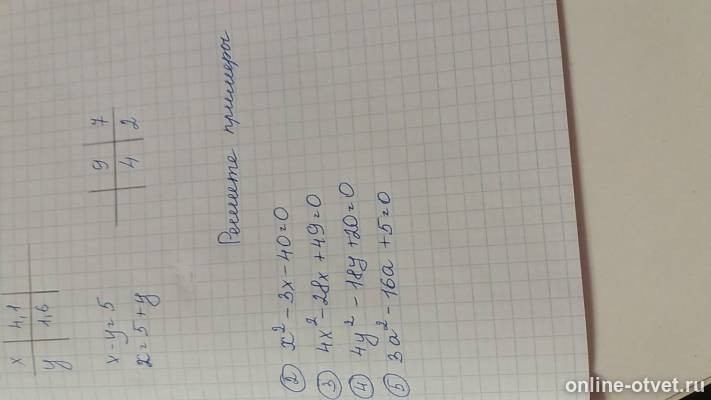 x 4,1
y 1,6
x-y=5
x=5+y
9 7
4 2
Решите примеры
② x²-3x-40=0
③ 4x²-28x+49=0
④ 4y²-18y+20=0
⑤ 3a²-16a+5=0
online-otvet.ru